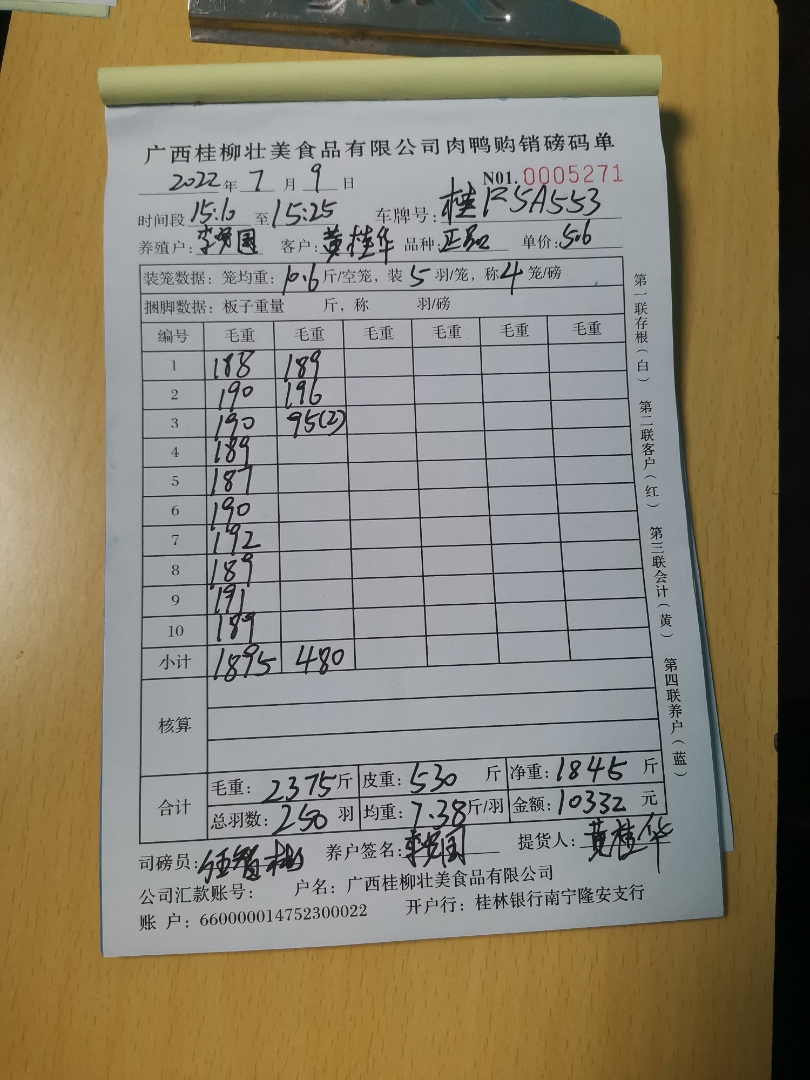 广西桂柳壮美食品有限公司肉鸭购销磅码单
2022年 7 月 9 日 N01.0005271
时间段 15:10 至 15:25 车牌号: 桂R5A553
养殖户: 李 国 客户: 黄桂华 品种: 正 单价: 5.6
装笼数据: 笼均重: 10.6斤/空笼, 装 5 羽/笼, 称 4 笼/磅
捆脚数据: 板子重量 斤, 称 羽/磅
编号 毛重 毛重 毛重 毛重 毛重 毛重
1 188 189
2 190 196
3 190 95(2)
4 189
5 187
6 190
7 192
8 189
9 191
10 189
小计 1895 480
核算
合计
毛重: 2375斤 皮重: 530 斤 净重: 1845 斤
总羽数: 250 羽 均重: 7.38斤/羽 金额: 10332 元
司磅员: 养户签名: 李 国 提货人: 黄桂华
公司汇款账号: 户名: 广西桂柳壮美食品有限公司
账 户: 660000014752300022 开户行: 桂林银行南宁隆安支行
第一联存根(白) 第二联客户(红) 第三联会计(黄) 第四联养户(蓝)